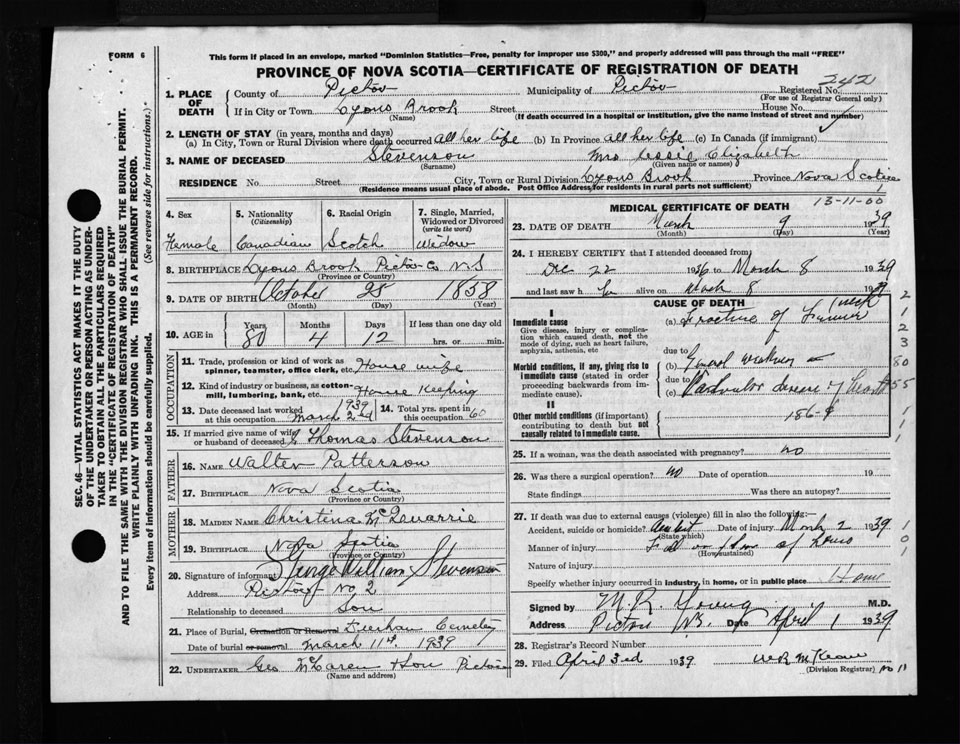 FORM 6
This form if placed in an envelope, marked "Dominion Statistics—Free, penalty for improper use $300," and properly addressed will pass through the mail "FREE"
PROVINCE OF NOVA SCOTIA—CERTIFICATE OF REGISTRATION OF DEATH
242
1. PLACE OF DEATH County of Pictou Municipality of Pictou Registered No.
(For use of Registrar General only)
If in City or Town Lyons Brook Street House No.
(Name) (If death occurred in a hospital or institution, give the name instead of street and number)
2. LENGTH OF STAY (in years, months and days)
(a) In City, Town or Rural Division where death occurred all her life (b) In Province all her life (c) In Canada (if immigrant)
3. NAME OF DECEASED Stevenson Mrs Jessie Elizabeth
(Surname) (Given name or names)
RESIDENCE No. Street City, Town or Rural Division Lyons Brook Province Nova Scotia
(Residence means usual place of abode. Post Office Address for residents in rural parts not sufficient)
4. Sex Female
5. Nationality (Citizenship) Canadian
6. Racial Origin Scotch
7. Single, Married, Widowed or Divorced (write the word) Widow
8. BIRTHPLACE Lyons Brook Pictou Co NS
(Province or Country)
9. DATE OF BIRTH October 28 1858
(Month) (Day) (Year)
10. AGE in Years Months Days If less than one day old
80 4 12 hrs. or min.
OCCUPATION
11. Trade, profession or kind of work as spinner, teamster, office clerk, etc. House wife
12. Kind of industry or business, as cotton-mill, lumbering, bank, etc. House Keeping
13. Date deceased last worked at this occupation March 2nd 1939
14. Total yrs. spent in this occupation 60
15. If married give name of wife or husband of deceased Thomas Stevenson
FATHER
16. NAME Walter Patterson
17. BIRTHPLACE Nova Scotia
(Province or Country)
MOTHER
18. MAIDEN NAME Christina McQuarrie
19. BIRTHPLACE Nova Scotia
(Province or Country)
20. Signature of informant George William Stevenson
Address Pictou No 2
Relationship to deceased Son
21. Place of Burial, Cremation or Removal Cemetery
Date of burial or removal March 11th 1939
22. UNDERTAKER Geo McLaren & Son Pictou
(Name and address)
13-11-00
MEDICAL CERTIFICATE OF DEATH
23. DATE OF DEATH March 9 1939
(Month) (Day) (Year)
24. I HEREBY CERTIFY that I attended deceased from
Dec 22 1936 to March 8 1939
and last saw her alive on March 8 1939
CAUSE OF DEATH
I
Immediate cause
Give disease, injury or complication which caused death, not the mode of dying, such as heart failure, asphyxia, asthenia, etc
(a) Fracture of Femur neck
due to
Morbid conditions, if any, giving rise to immediate cause (stated in order proceeding backwards from immediate cause).
(b) General weakness
due to
(c) Valvular disease of heart
II
Other morbid conditions (if important) contributing to death but not causally related to immediate cause.
186-9
2
1
2
3
80
55
1
1
1
25. If a woman, was the death associated with pregnancy? no
26. Was there a surgical operation? no Date of operation 19
State findings Was there an autopsy?
27. If death was due to external causes (violence) fill in also the following:
Accident, suicide or homicide? Date of injury March 2 1939
(State which)
Manner of injury Fall on floor of house
(How sustained)
Nature of injury
Specify whether injury occurred in industry, in home, or in public place Home
1
0
1
Signed by M.R. Young M.D.
Address Pictou N.S. Date April 1 1939
28. Registrar's Record Number
29. Filed April 3rd 1939 McKean
(Division Registrar) No 11
SEC. 46—VITAL STATISTICS ACT MAKES IT THE DUTY
OF THE UNDERTAKER OR PERSON ACTING AS UNDER-
TAKER TO OBTAIN ALL THE PARTICULARS REQUIRED
IN THE "CERTIFICATE OF REGISTRATION OF DEATH"
AND TO FILE THE SAME WITH THE DIVISION REGISTRAR WHO SHALL ISSUE THE BURIAL PERMIT.
WRITE PLAINLY WITH UNFADING INK. THIS IS A PERMANENT RECORD.
Every item of information should be carefully supplied. (See reverse side for instructions.)